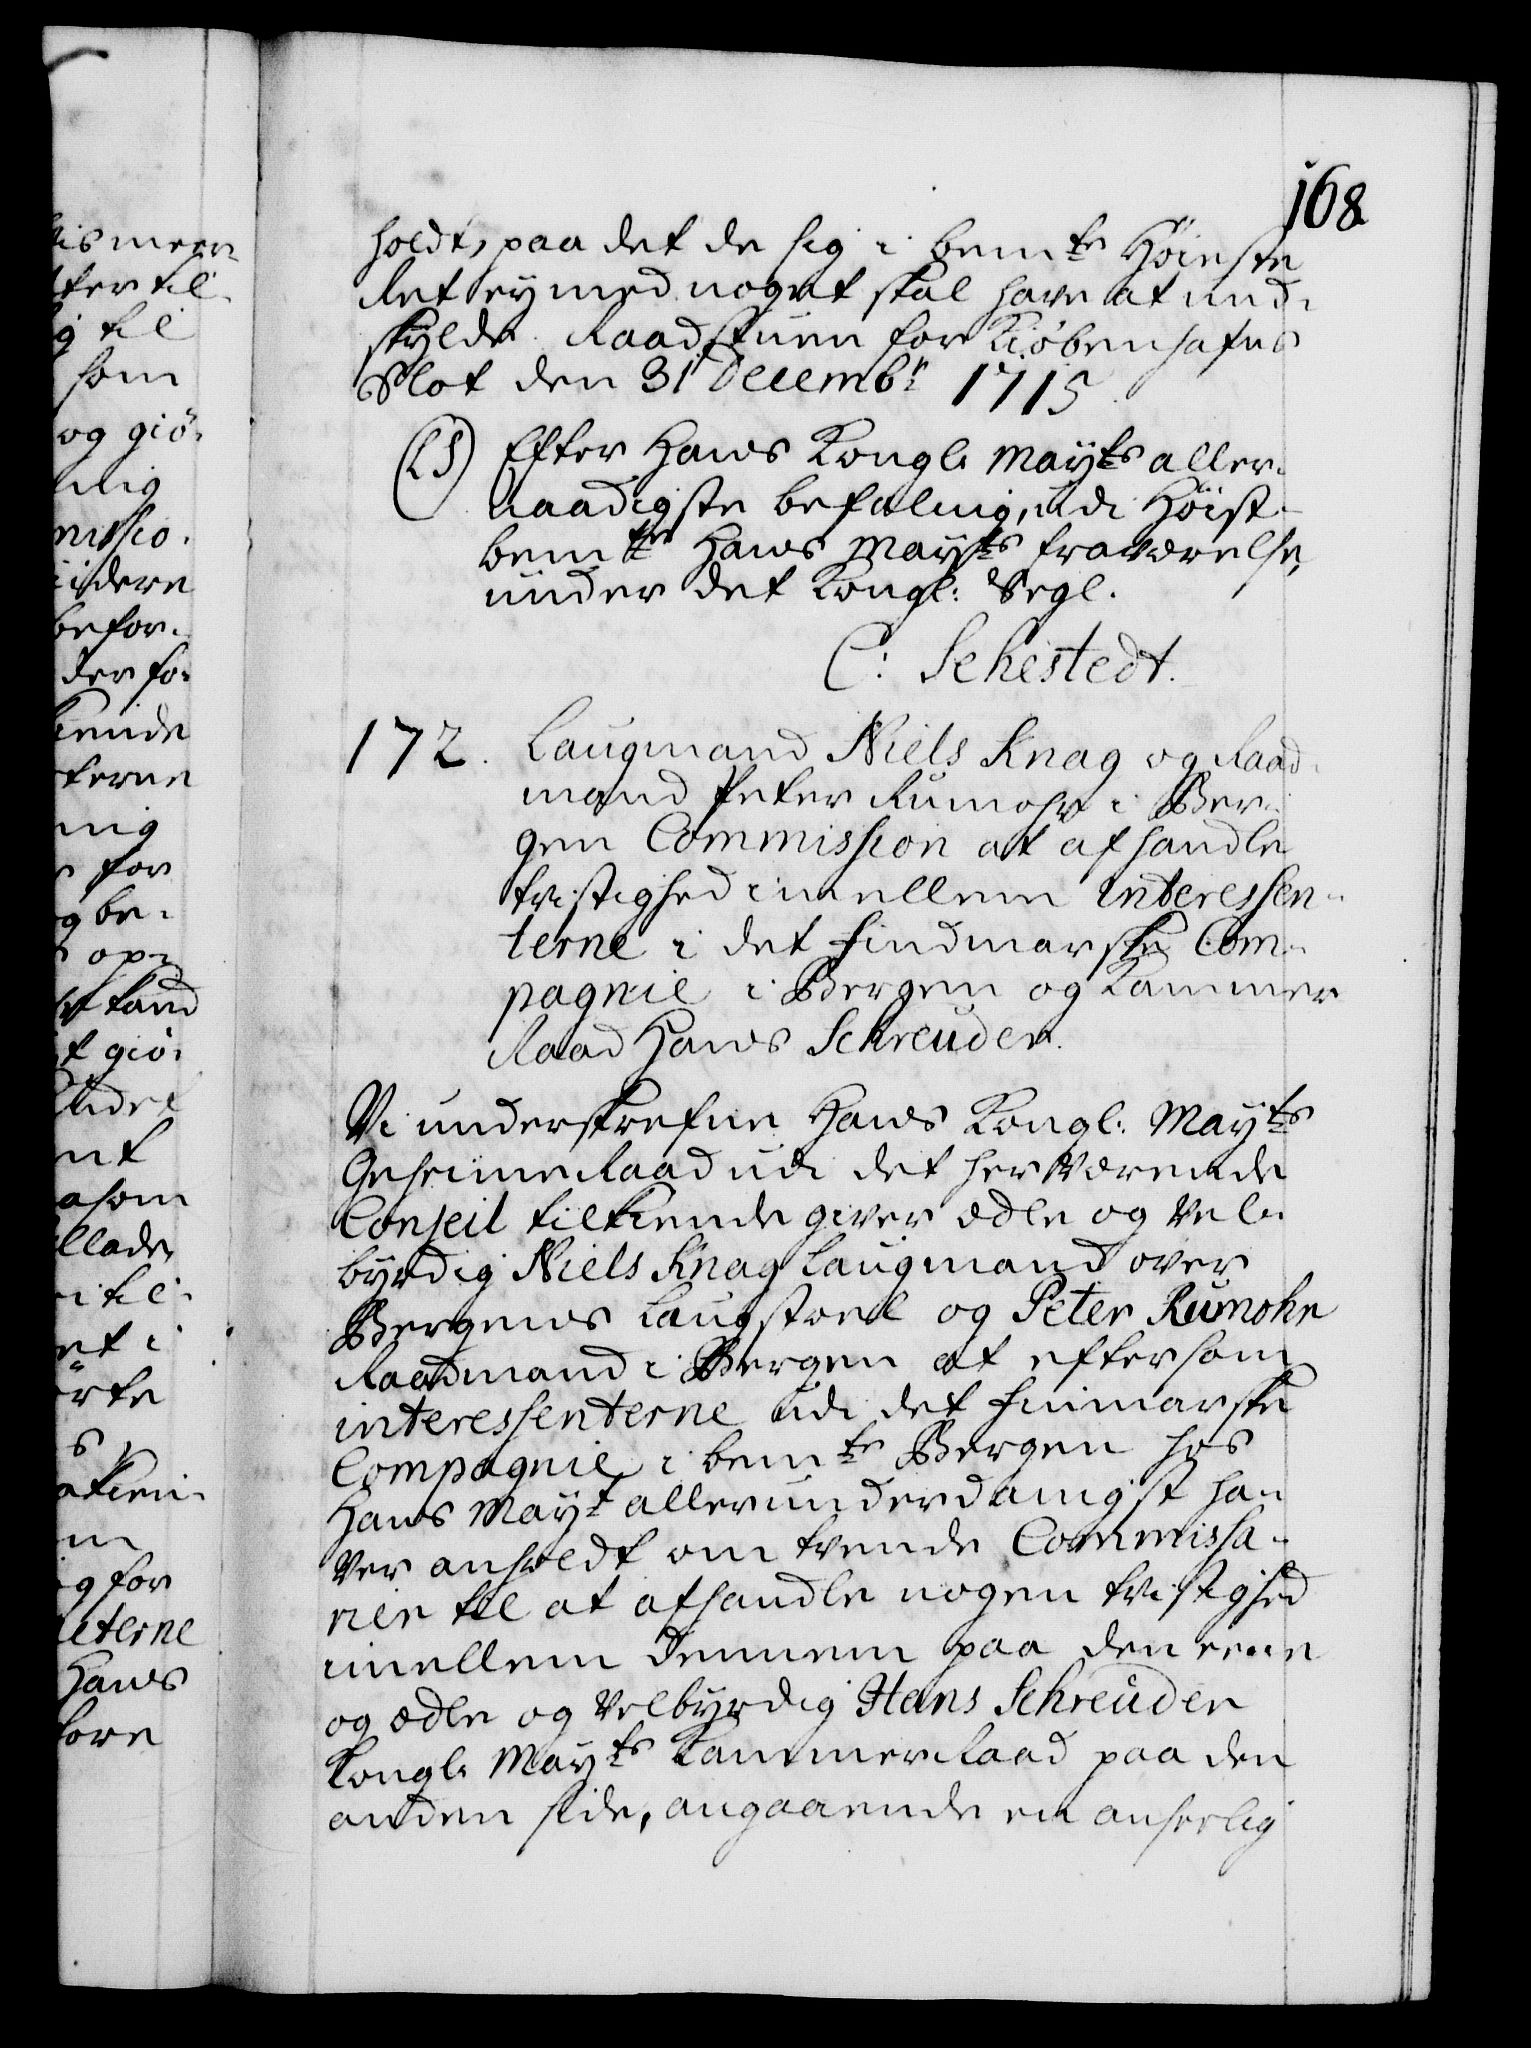 168
holdt, paa det de sig i bemte Høieste
Ret ey med noget skal have at und-
skylde. Raadstuen for Kiøbenhafns
Slot den 31 Decembr 1715
(LS) Efter Hans Kongl. Mayts aller-
naadigste befaling, udi Høist-
bemte Hans Mayts fraværelse,
under det Kongl: Segl.
C: Sehestedt.
172. Laugmand Niels Knag og Raad-
mand Peter Rumohr i Ber-
gen Commission at afhandle
tvistighed imellem Interessen-
terne i det Findmarske Com-
pagnie i Bergen og Kammer
Raad Hans Schreuder.
Vi underskrefne Hans Kongl. Mayts
GeheimeRaad udi det herværende
Conseil tilkiende giver ædle og Vel-
byrdig Niels Knag Laugmand over
Bergens Laugstoel og Peter Rumohr
Raadmand i Bergen at eftersom
interessenterne udi det Finmarske
Compagnie i bemte Bergen hos
Hans Mayt allerunderdanigst ha-
ver anholdt om tvende Commissa-
rier til at afhandle nogen tvistighed
imellem dennem paa den eene
og ædle og Velbyrdig Hans Schreuder
Kongl. Mayts KammerRaad paa den
anden side, angaaende en anseelig
is meer
ter til-
g til
som
og giø-
nig
missio-
idere
befor-
der fo-
kiende
terne
nig
for
og be-
op-
tand
t giø-
ndet
nt
asom
llade,
til-
et i
ørte
s
atien-
m
g for
eterne
Hans
fore